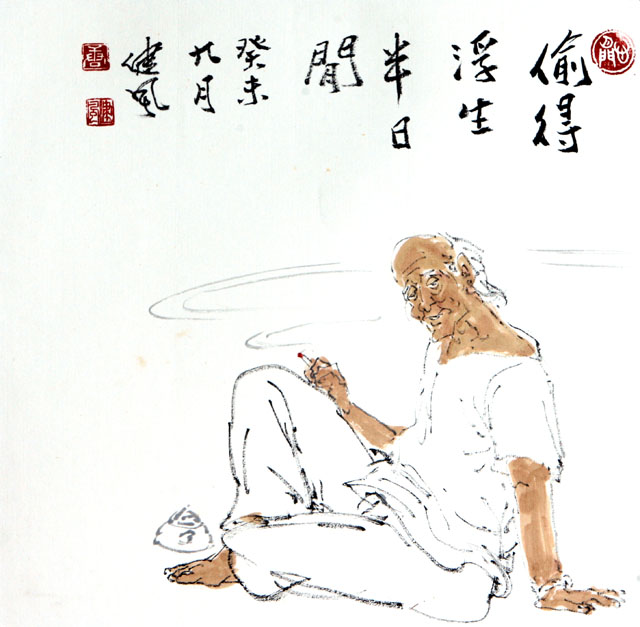 偷得
浮生
半日
閒
癸未
九月
健風